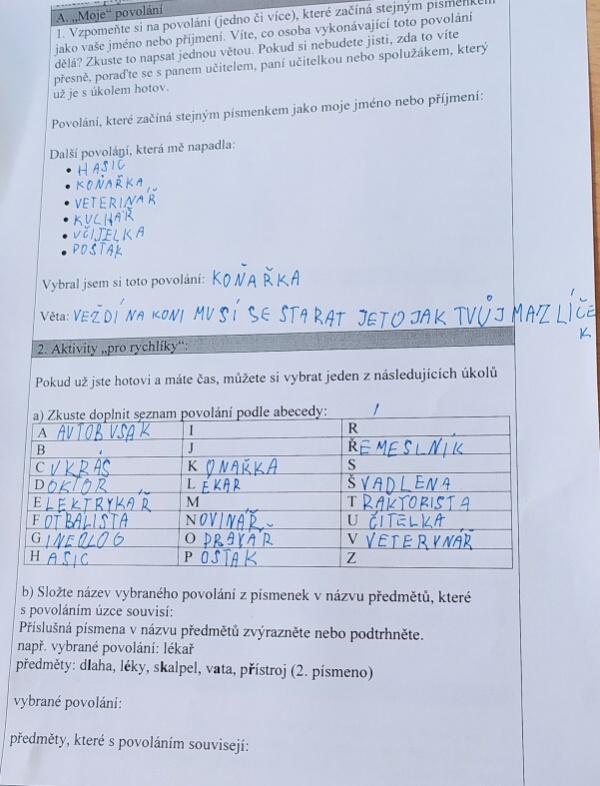 A. „Moje“ povolání
1. Vzpomeňte si na povolání (jedno či více), které začíná stejným písmenkem
jako vaše jméno nebo příjmení. Víte, co osoba vykonávající toto povolání
dělá? Zkuste to napsat jednou větou. Pokud si nebudete jisti, zda to víte
přesně, poraďte se s panem učitelem, paní učitelkou nebo spolužákem, který
už je s úkolem hotov.
Povolání, které začíná stejným písmenkem jako moje jméno nebo příjmení:
Další povolání, která mě napadla:
• HASIČ
• KOŇAŘKA
• VETERINÁŘ
• KUCHAŘ
• UČIJELKA
• POŠŤÁK
Vybral jsem si toto povolání: KOŇAŘKA
Věta: VEŽDÍ NA KONI MUSÍ SE STARAT JETO JAK TVŮJ MAZLÍČEK
2. Aktivity „pro rychlíky“:
Pokud už jste hotovi a máte čas, můžete si vybrat jeden z následujících úkolů
a) Zkuste doplnit seznam povolání podle abecedy:
A AUTOBUSAK I R
B J ŘEMESLNÍK
CUKRÁŠ KOŇAŘKA S
DOKTOR LÉKAR ŠVADLENA
ELEKTRYKÁŘ M TRAKTORISTA
FOTBALISTA NOVINÁŘ U ČITELKA
GINEOLOG OPRAVÁŘ VETERYNÁŘ
HASIČ POŠŤAK Z
b) Složte název vybraného povolání z písmenek v názvu předmětů, které
s povoláním úzce souvisí:
Příslušná písmena v názvu předmětů zvýrazněte nebo podtrhněte.
např. vybrané povolání: lékař
předměty: dlaha, léky, skalpel, vata, přístroj (2. písmeno)
vybrané povolání:
předměty, které s povoláním souvisejí: